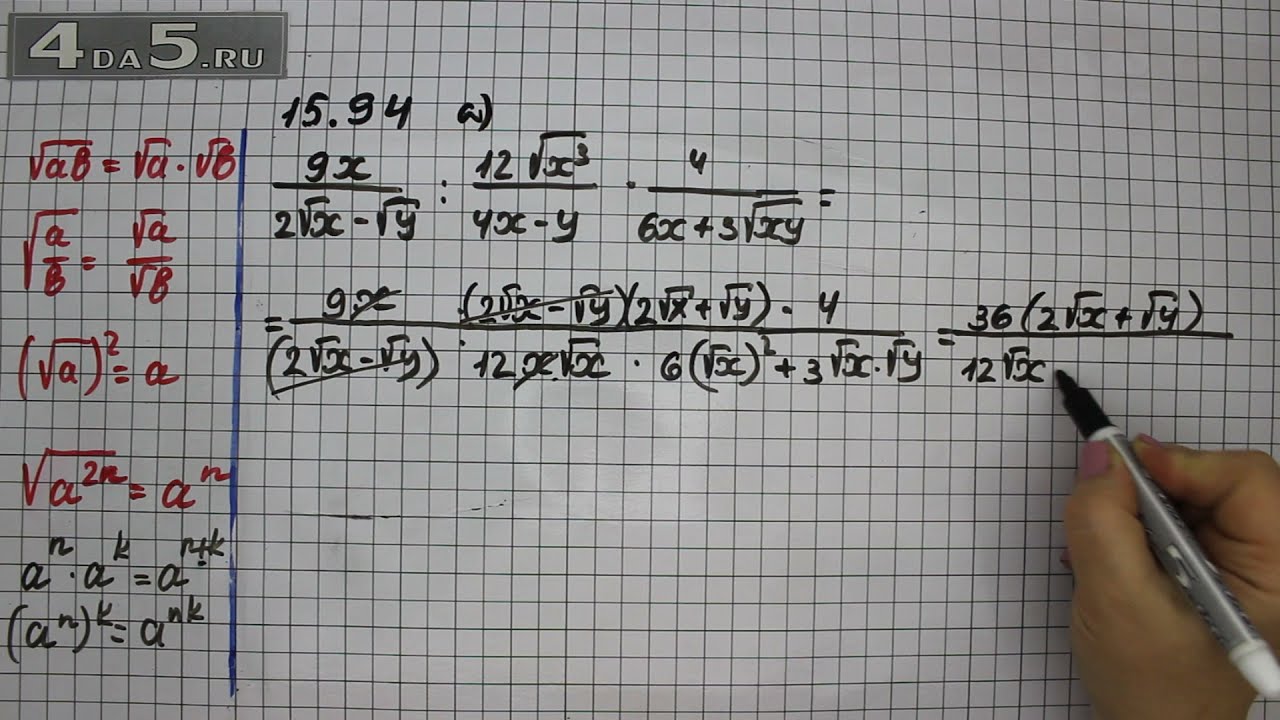 4DA5.RU
15.94 а)
√(ab) = √a · √b
√(a/b) = √a/√b
(√a)² = a
√(a²ⁿ) = aⁿ
aⁿ · aᵏ = aⁿ⁺ᵏ
(aⁿ)ᵏ = aⁿᵏ
9x/(2√x − √y) : 12√(x³)/(4x − y) · 4/(6x + 3√(xy)) =
= 9x (2√x − √y)(2√x + √y) · 4/((2√x − √y) · 12x√x · 6(√x)² + 3√x · √y) = 36(2√x + √y)/(12√x ·